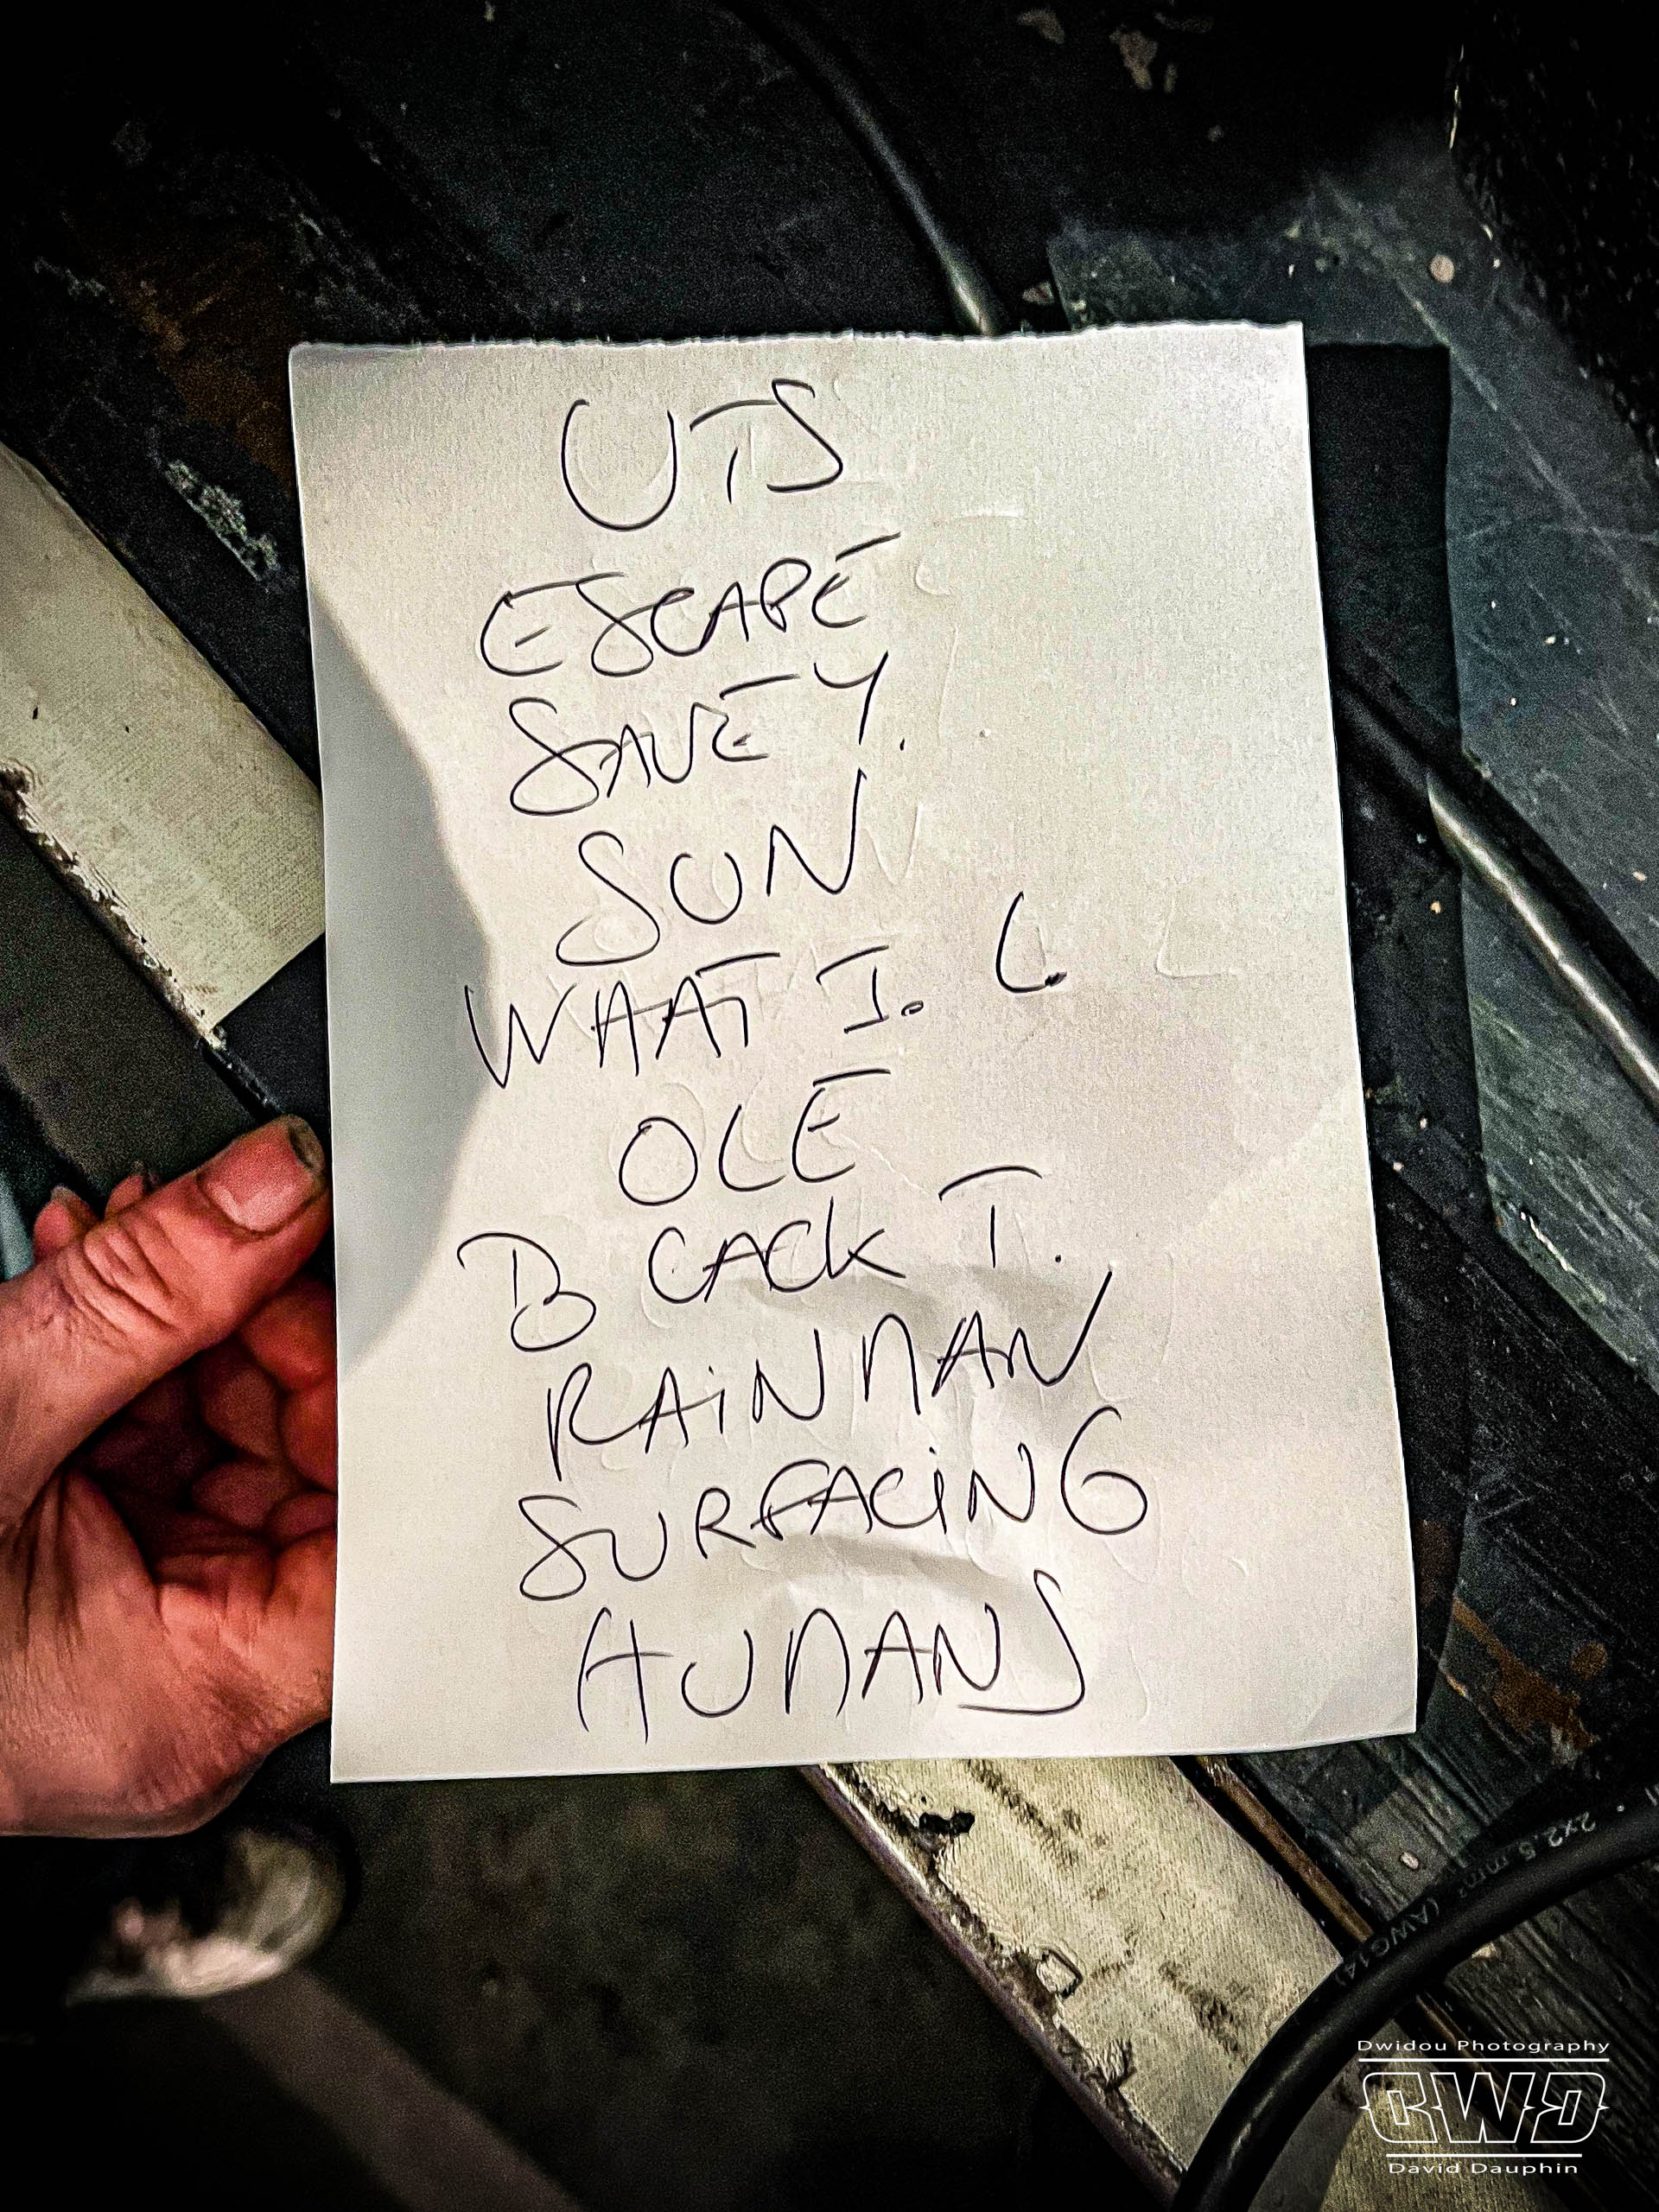 UTS
ESCAPE
SAVE Y.
SUN
WHAT I. L.
OLE
BLACK T.
RAiNMAN
SURFACiNG
HUMANS
2x2.5 mm² (AWG14)
Dwidou Photography
DWD
David Dauphin